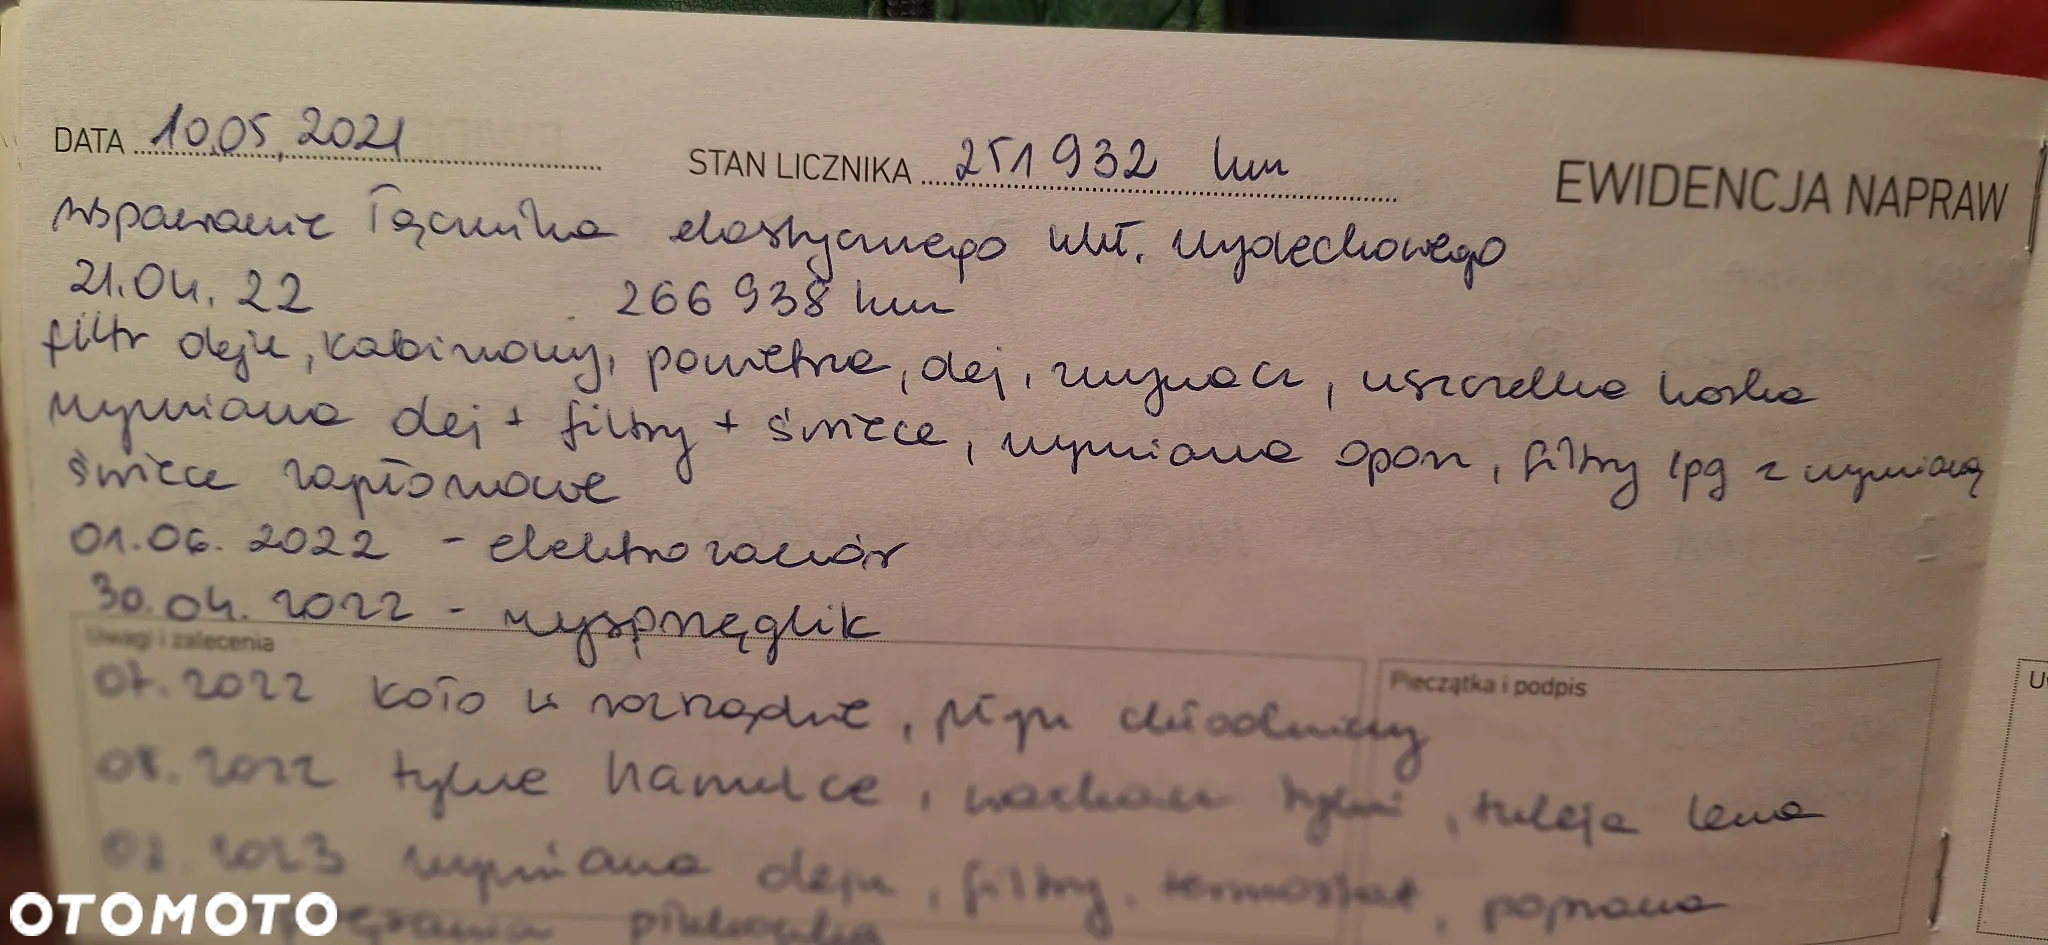 DATA 10.05.2021 STAN LICZNIKA 251 932 km EWIDENCJA NAPRAW
wspawanie łącznika elastycznego ukł. wydechowego
21.04.22 266 938 km
filtr oleju, kabinowy, powietrza, olej, zmywacz, uszczelka korka
wymiana olej + filtry + świece, wymiana opon, filtry lpg z wymianą
świece zapłonowe
01.06.2022 - elektrozawór
30.04.2022 - wysprzęglik
Uwagi i zalecenia
Pieczątka i podpis
07.2022 koło w rozrządzie, płyn chłodniczy
08.2022 tylne hamulce, wachacz tylni, tuleja lewa
02.2023 wymiana oleju, filtry, termostat, poprawa
OTOMOTO